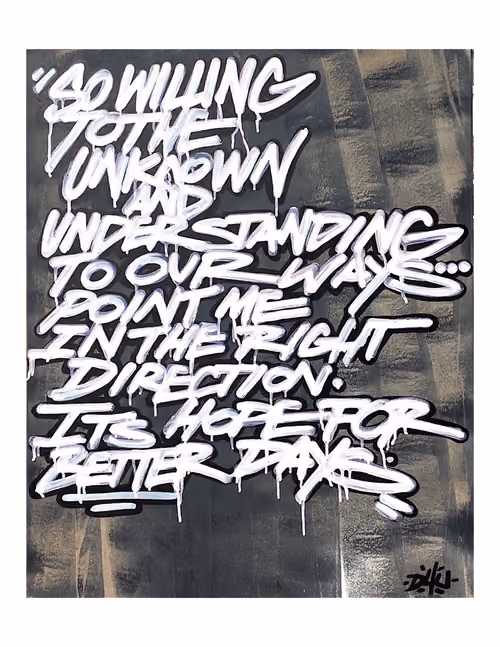 "SO WILLING
TO THE
UNKNOWN
AND
UNDERSTANDING
TO OUR WAYS...
POINT ME
IN THE RIGHT
DIRECTION.
ITS HOPE FOR
BETTER DAYS.